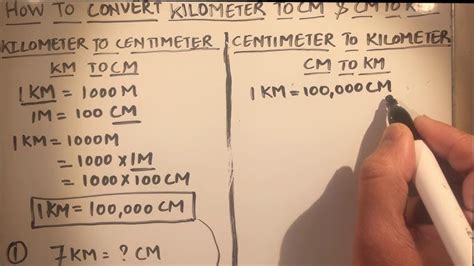 HOW TO CONVERT KILOMETER TO CM & CM TO KM
KILOMETER TO CENTIMETER
KM TO CM
1 KM = 1000 M
1M = 100 CM
1 KM = 1000M
= 1000 X 1M
= 1000 X 100 CM
1 KM = 100,000 CM
1 7 KM = ? CM
CENTIMETER TO KILOMETER
CM TO KM
1 KM = 100,000 CM